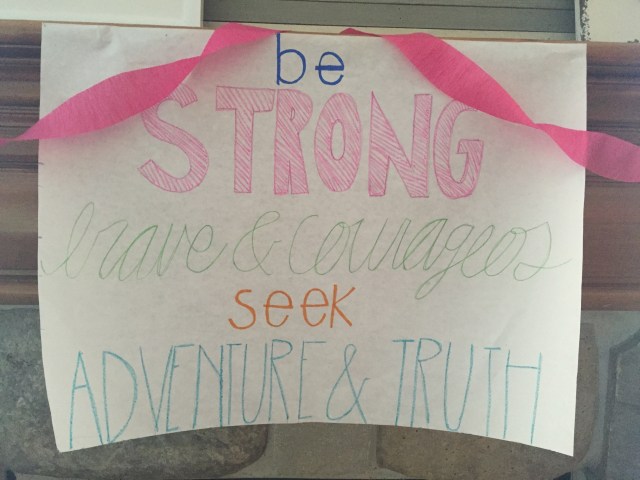 be
STRONG
brave & courageos
seek
ADVENTURE & TRUTH